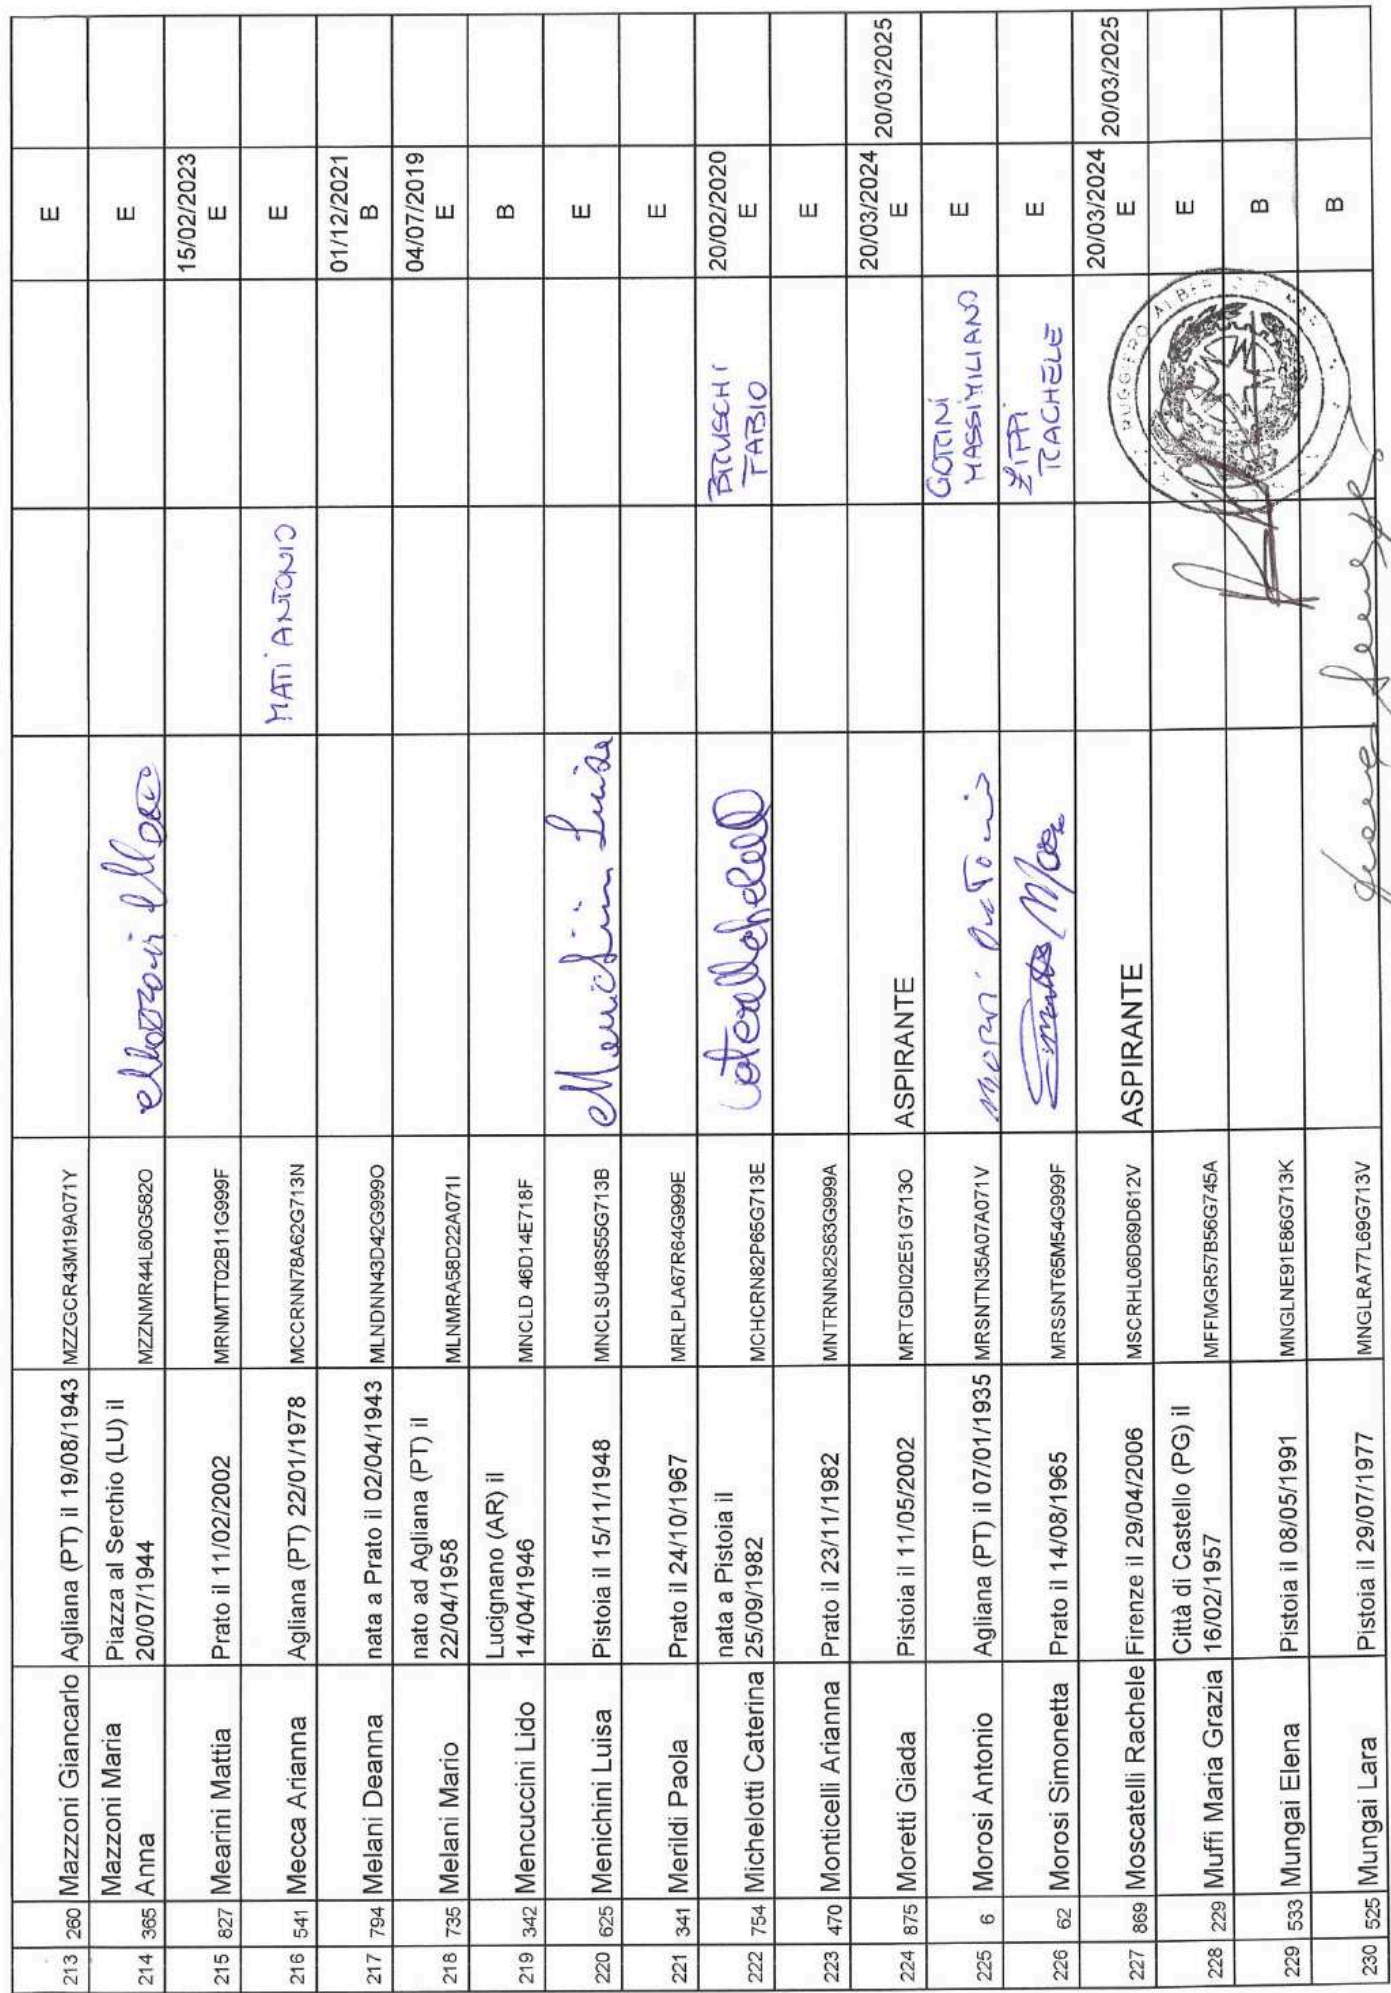 213 260 Mazzoni Giancarlo Agliana (PT) il 19/08/1943 MZZGCR43M19A071Y E
214 365 Mazzoni Maria Anna Piazza al Serchio (LU) il 20/07/1944 MZZNMR44L60G582O E
215 827 Mearini Mattia Prato il 11/02/2002 MRNMTT02B11G999F 15/02/2023 E
216 541 Mecca Arianna Agliana (PT) 22/01/1978 MCCRNN78A62G713N MATI ANTONIO E
217 794 Melani Deanna nata a Prato il 02/04/1943 MLNDNN43D42G999O 01/12/2021 B
218 735 Melani Mario nato ad Agliana (PT) il 22/04/1958 MLNMRA58D22A071I 04/07/2019 E
219 342 Mencuccini Lido Lucignano (AR) il 14/04/1946 MNCLD 46D14E718F B
220 625 Menichini Luisa Pistoia il 15/11/1948 MNCLSU48S55G713B Menichini Luisa E
221 341 Merildi Paola Prato il 24/10/1967 MRLPLA67R64G999E E
222 754 Michelotti Caterina nata a Pistoia il 25/09/1982 MCHCRN82P65G713E BRUSCHI FABIO 20/02/2020 E
223 470 Monticelli Arianna Prato il 23/11/1982 MNTRNN82S63G999A E
224 875 Moretti Giada Pistoia il 11/05/2002 MRTGDI02E51G713O ASPIRANTE 20/03/2024 E 20/03/2025
225 6 Morosi Antonio Agliana (PT) il 07/01/1935 MRSNTN35A07A071V GORINI MASSIMILIANO E
226 62 Morosi Simonetta Prato il 14/08/1965 MRSSNT65M54G999F ZIPPI RACHELE E
227 869 Moscatelli Rachele Firenze il 29/04/2006 MSCRHL06D69D612V ASPIRANTE 20/03/2024 E 20/03/2025
228 229 Muffi Maria Grazia Città di Castello (PG) il 16/02/1957 MFFMGR57B56G745A E
229 533 Mungai Elena Pistoia il 08/05/1991 MNGLNE91E86G713K B
230 525 Mungai Lara Pistoia il 29/07/1977 MNGLRA77L69G713V B
RUGGIERO ALBERTO